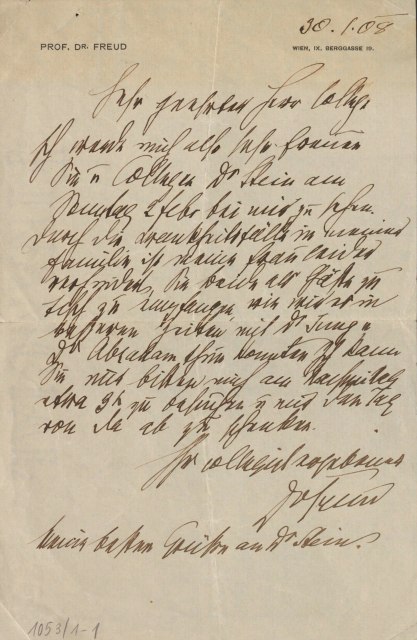 30.1.08
PROF. DR. FREUD
WIEN, IX. BERGGASSE 19.
Sehr geehrter Herr College
Ich werde mich also sehr freuen
Sie u Collegen Dr Stein am
Sonntag 2 Febr bei mir zu sehen.
Durch die Krankheitsfälle in meiner
Familie ist meine Frau leider
verhindert, Sie beide als Gäste zu
Tisch zu empfangen, wie wir es in
besseren Zeiten mit Dr Jung u
Dr Abraham thun konnten. Ich kann
Sie nur bitten mich am Nachmittag
etwa 3h zu besuchen u mir den Tag
von da ab zu schenken.
Ihr collegial ergebener
Dr Freud
Meine besten Grüße an Dr Stein.
1053/1-1